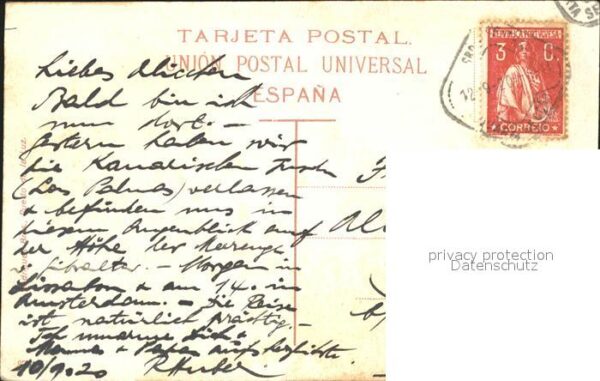 TARJETA POSTAL.
UNIÓN POSTAL UNIVERSAL
ESPAÑA
REPUBLICA PORTUGUESA
3 C.
CORREIO
Liebes
Bald bin ich
nun dort. –
Gestern haben wir
die Kanarischen Inseln
(Las Palmas) verlassen
& befinden uns in
diesem Augenblick auf
der Höhe der
Gibraltar. – Morgen in
Lissabon & am 14. in
Amsterdam. – Die Reise
ist natürlich prächtig. –
Ich umarme Dich &
Mamma & Papa aufs herzlichste
10/9.20
privacy protection
Datenschutz